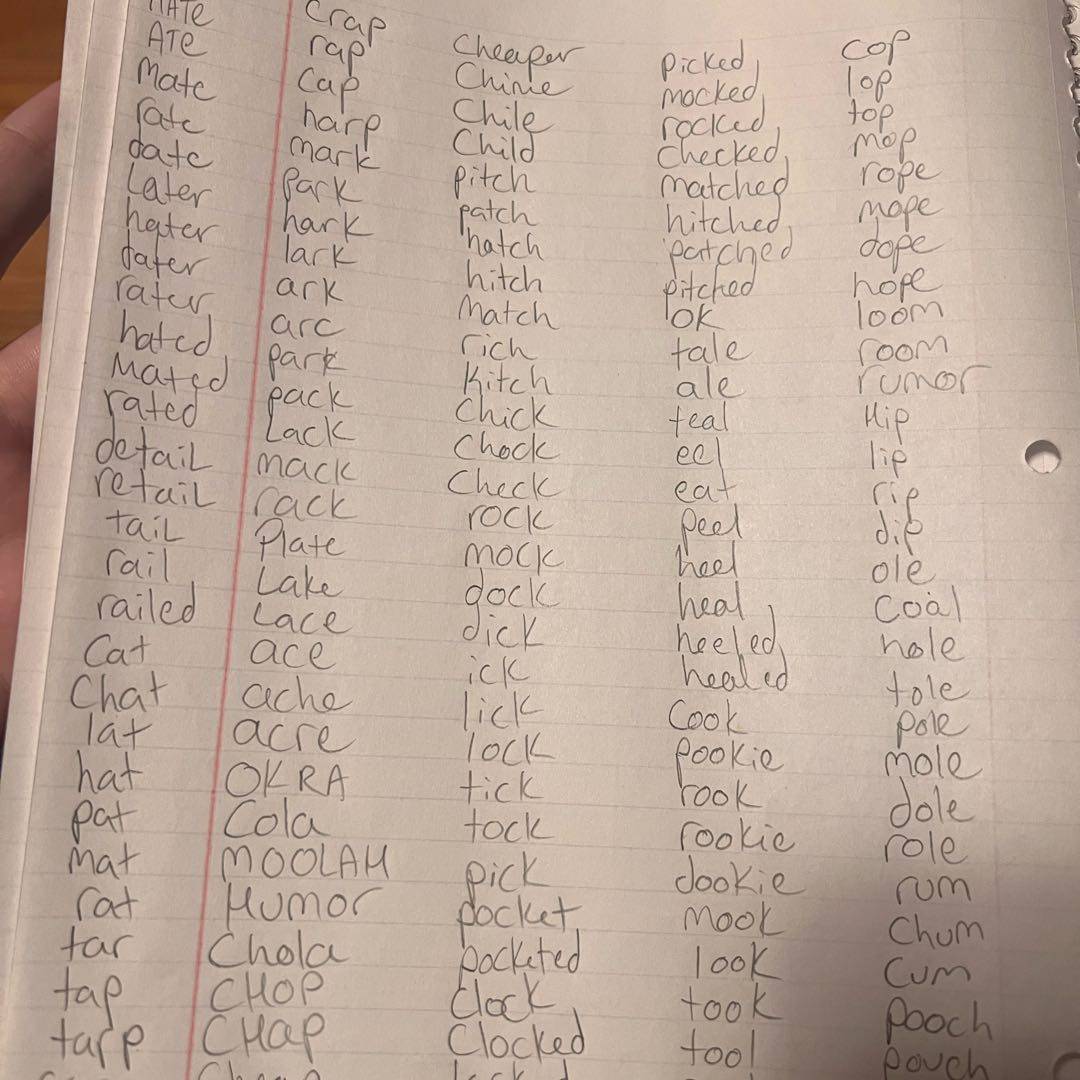 HATE
ATE
Mate
rate
date
Later
hater
dater
rater
hated
Mated
rated
detail
retail
tail
rail
railed
Cat
Chat
lat
hat
pat
Mat
rat
tar
tap
tarp
Crap
rap
Cap
harp
mark
park
hark
lark
ark
arc
park
pack
Lack
mack
rack
Plate
Lake
Lace
ace
ache
acre
OKRA
Cola
MOOLAH
Humor
Chola
CHOP
CHAP
Cheaper
Chime
Chile
Child
pitch
patch
hatch
hitch
Match
rich
Kitch
Chick
Chock
Check
rock
mock
dock
dick
ick
lick
lock
tick
tock
pick
pocket
pocketed
Clock
Clocked
picked
mocked
rocked
checked
matched
hitched
patched
pitched
OK
tale
ale
teal
eel
eat
peel
heel
heal
heeled
healed
Cook
pookie
rook
rookie
dookie
mook
look
took
tool
cop
lop
top
mop
rope
mope
dope
hope
loom
room
rumor
Hip
lip
rip
dip
ole
coal
hole
tole
pole
mole
dole
role
rum
Chum
Cum
pooch
pouch